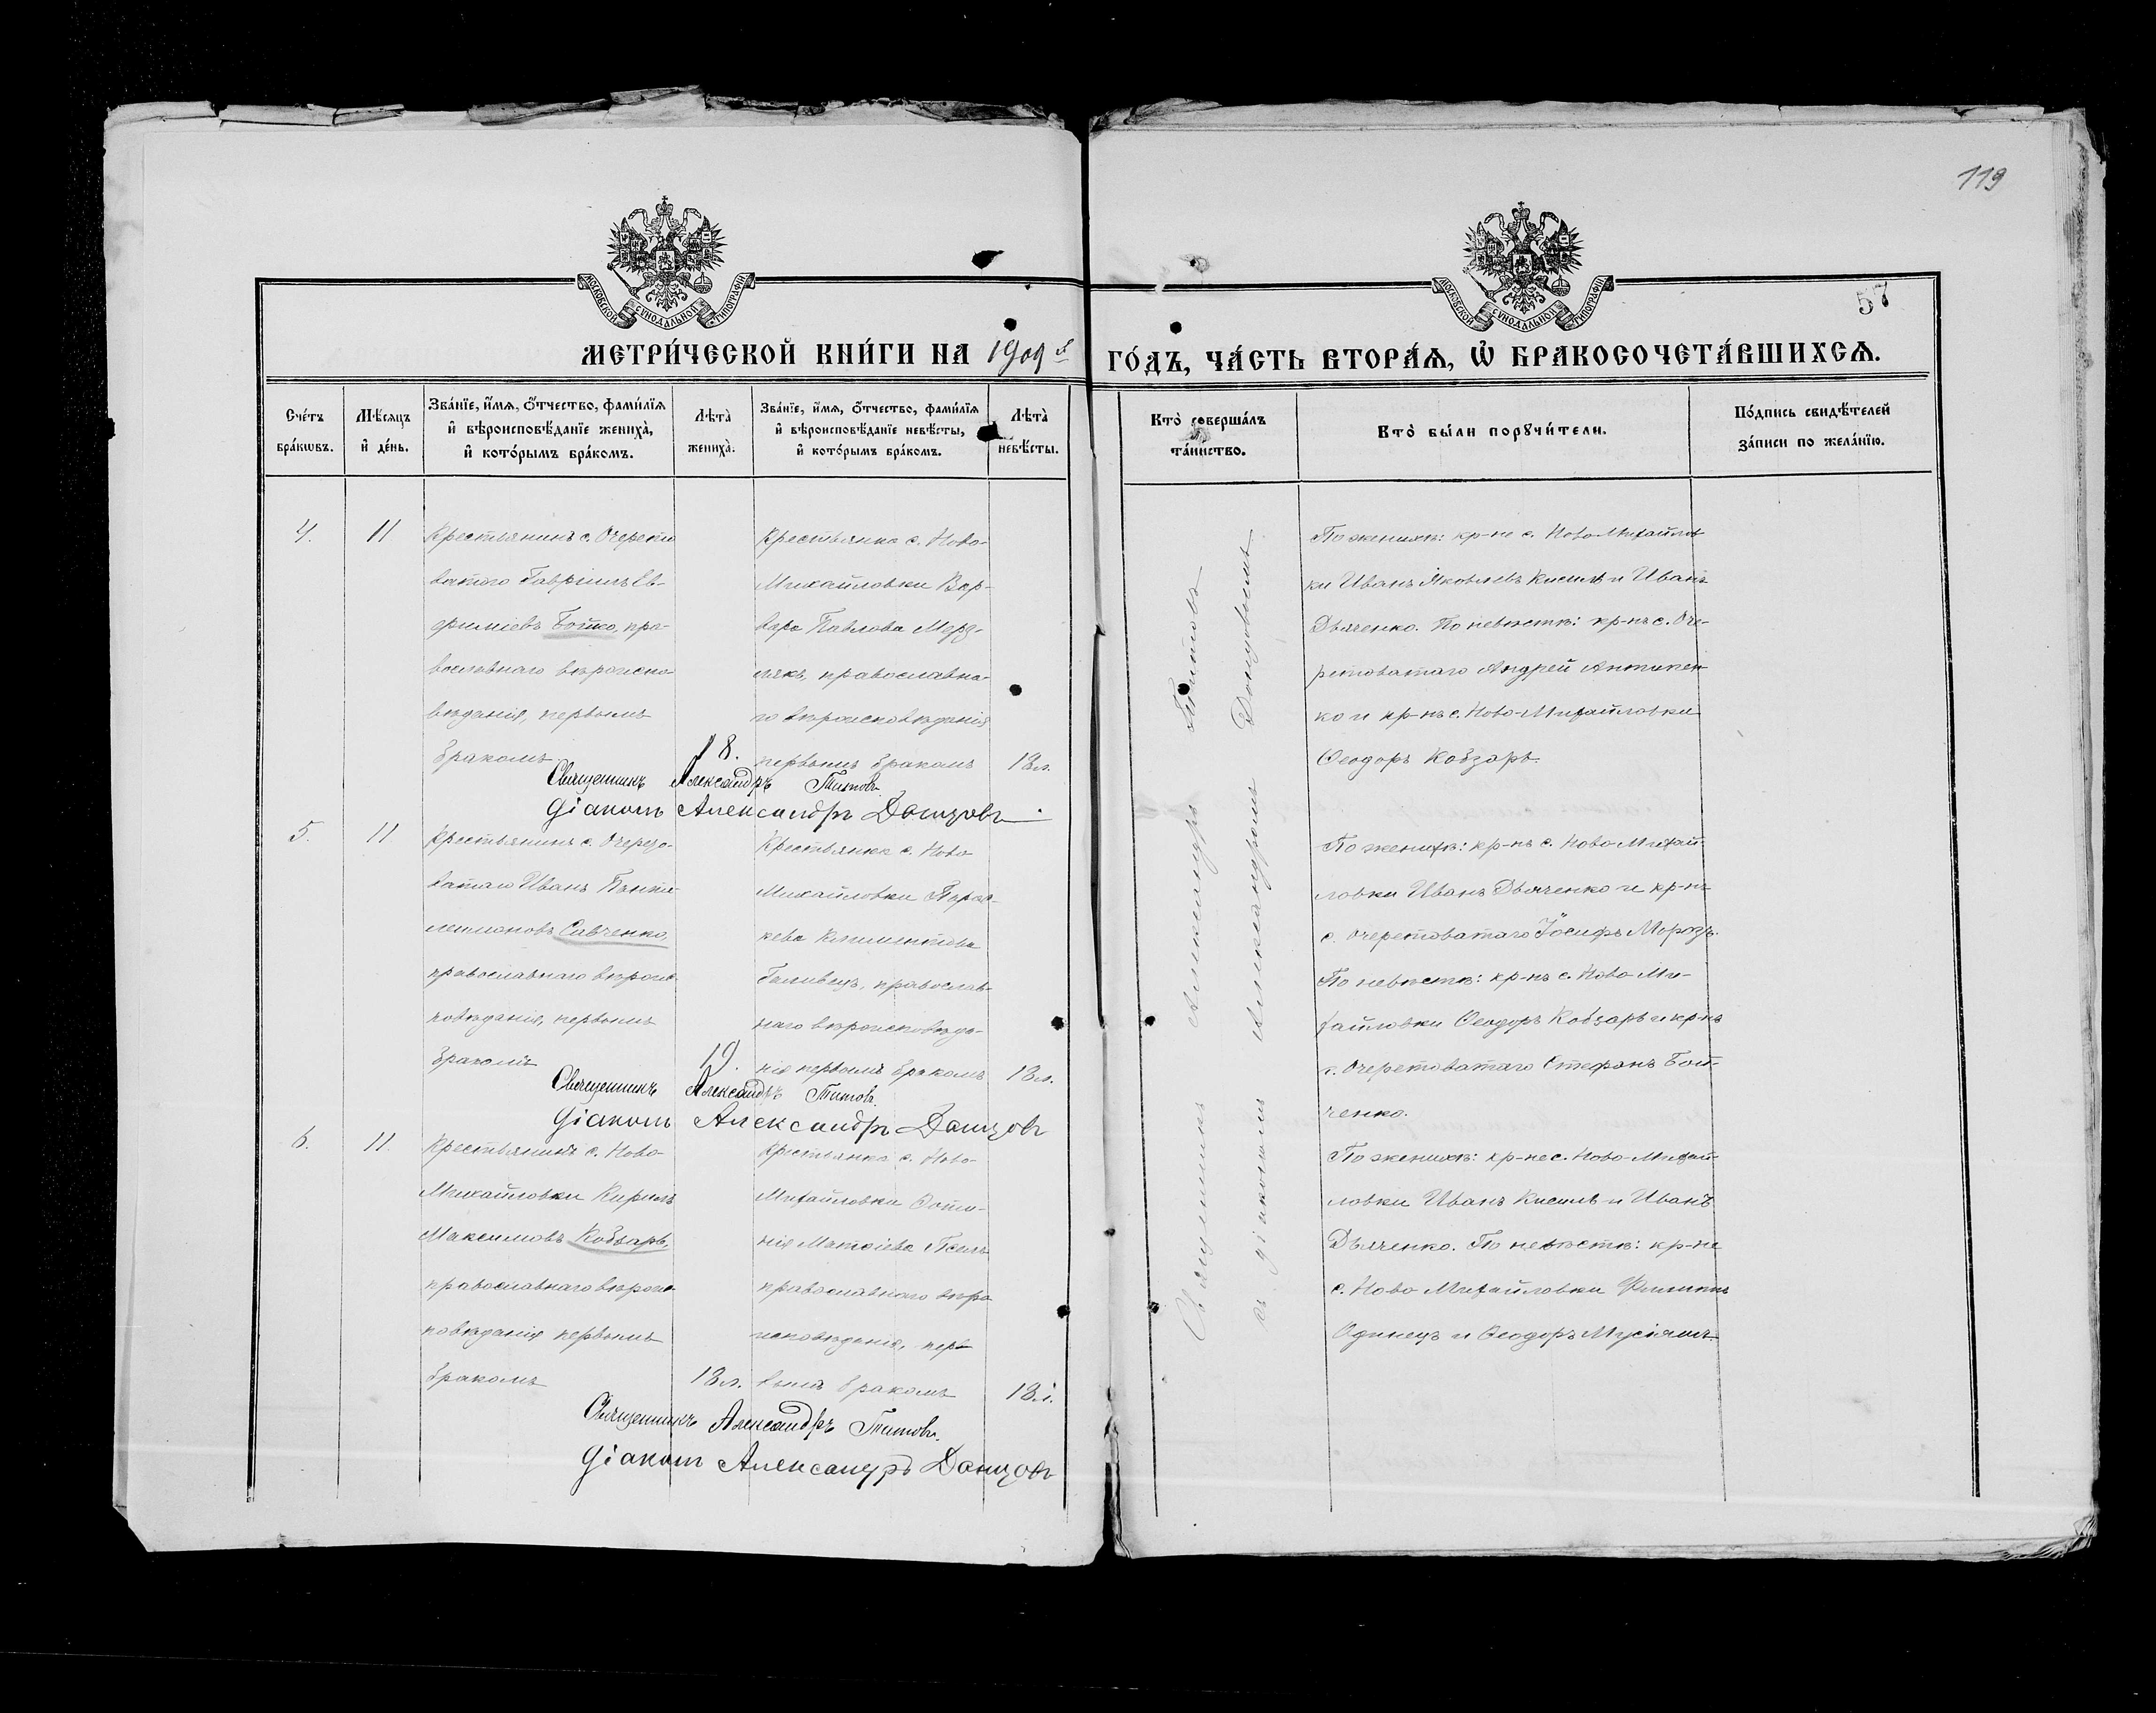 119
57
МОСКОВСКОЙ СѴНОДАЛЬНОЙ ТИПОГРАФІИ
МОСКОВСКОЙ СѴНОДАЛЬНОЙ ТИПОГРАФІИ
МЕТРИ́ЧЕСКОЙ КНИ́ГИ НА 1909 й ГО́ДЪ, ЧА́СТЬ ВТОРА́Ѧ, Ѡ҆ БРАКОСОЧЕТА́ВШИХСѦ.
Сче́тъ
бра́кѡвъ.
Мѣ́сѧцъ
и҆ де́нь.
Зва́нїе, и҆́мѧ, ѻ҆́тчество, фами́лїѧ
и҆ вѣроисповѣ́данїе жениха̀,
и҆ кото́рымъ бра́комъ.
Лѣта̀
жениха̀.
Зва́нїе, и҆́мѧ, ѻ҆́тчество, фами́лїѧ
и҆ вѣроисповѣ́данїе невѣ́сты,
и҆ кото́рымъ бра́комъ.
Лѣта̀
невѣ́сты.
Кто̀ соверша́лъ
та́инство.
Кто̀ бы́ли порꙋчи́тели.
По́дпись свидѣ́телей
за́писи по жела́нїю.
4.
11
Крестьянинъ с. Очерето
ватаго Гавріилъ Ев-
фиміевъ Бойко, пра-
вославнаго вѣроиспо
вѣданія, первымъ
бракомъ
18.
Крестьянка с. Ново-
Михайловки Вар-
вара Павлова Мерз-
лякъ, православна-
го вѣроисповѣданія
первымъ бракомъ
18 л.
Священникъ Александръ Титовъ
Діаконъ Александръ Донцовъ
По женихѣ: кр-не с. Ново Михайлов
ки Иванъ Яковлевъ Кисиль и Иванъ
Дьяченко. По невѣстѣ: кр-нъ с. Оче-
ретоватаго Андрей Антипен
ко и кр-нъ с. Ново-Михайловки
Ѳеодоръ Кобзарь.
5.
11
Крестьянинъ с. Очерето-
ватаго Иванъ Панте-
леимоновъ Савченко,
православнаго вѣроис
повѣданія, первымъ
бракомъ
19.
Крестьянка с. Ново
Михайловки Парас-
кева Климентова
православ-
наго вѣроисповѣда-
нія первымъ бракомъ
18 л.
Священникъ Александръ Титовъ.
Діаконъ Александръ Донцовъ
По женихѣ: кр-нъ с. Ново Михай-
ловки Иванъ Дьяченко и кр-нъ
с. Очеретоватаго Іосифъ Морозъ.
По невѣстѣ: кр-нъ с. Ново Ми-
хайловки Ѳеодоръ Кобзарь и кр-нъ
с. Очеретоватаго Стефанъ Бой-
ченко.
6.
11.
Крестьянинъ с. Ново-
Михайловки Кирилъ
Максимовъ Кобзарь,
православнаго вѣроис
повѣданія первымъ
бракомъ
18 л.
Крестьянка с. Ново-
Михайловки Фоти-
нія Матѳіева
православнаго вѣро
исповѣданія, пер
вымъ бракомъ
18 л.
Священникъ Александръ Титовъ.
Діаконъ Александръ Донцовъ
По женихѣ: кр-не с. Ново-Михай-
ловки Иванъ Кисиль и Иванъ
Дьяченко. По невѣстѣ: кр-не
с. Ново Михайловки Филиппъ
Одинецъ и Ѳеодоръ
Священникъ Александръ Титовъ
съ діакономъ Александромъ Донцовымъ